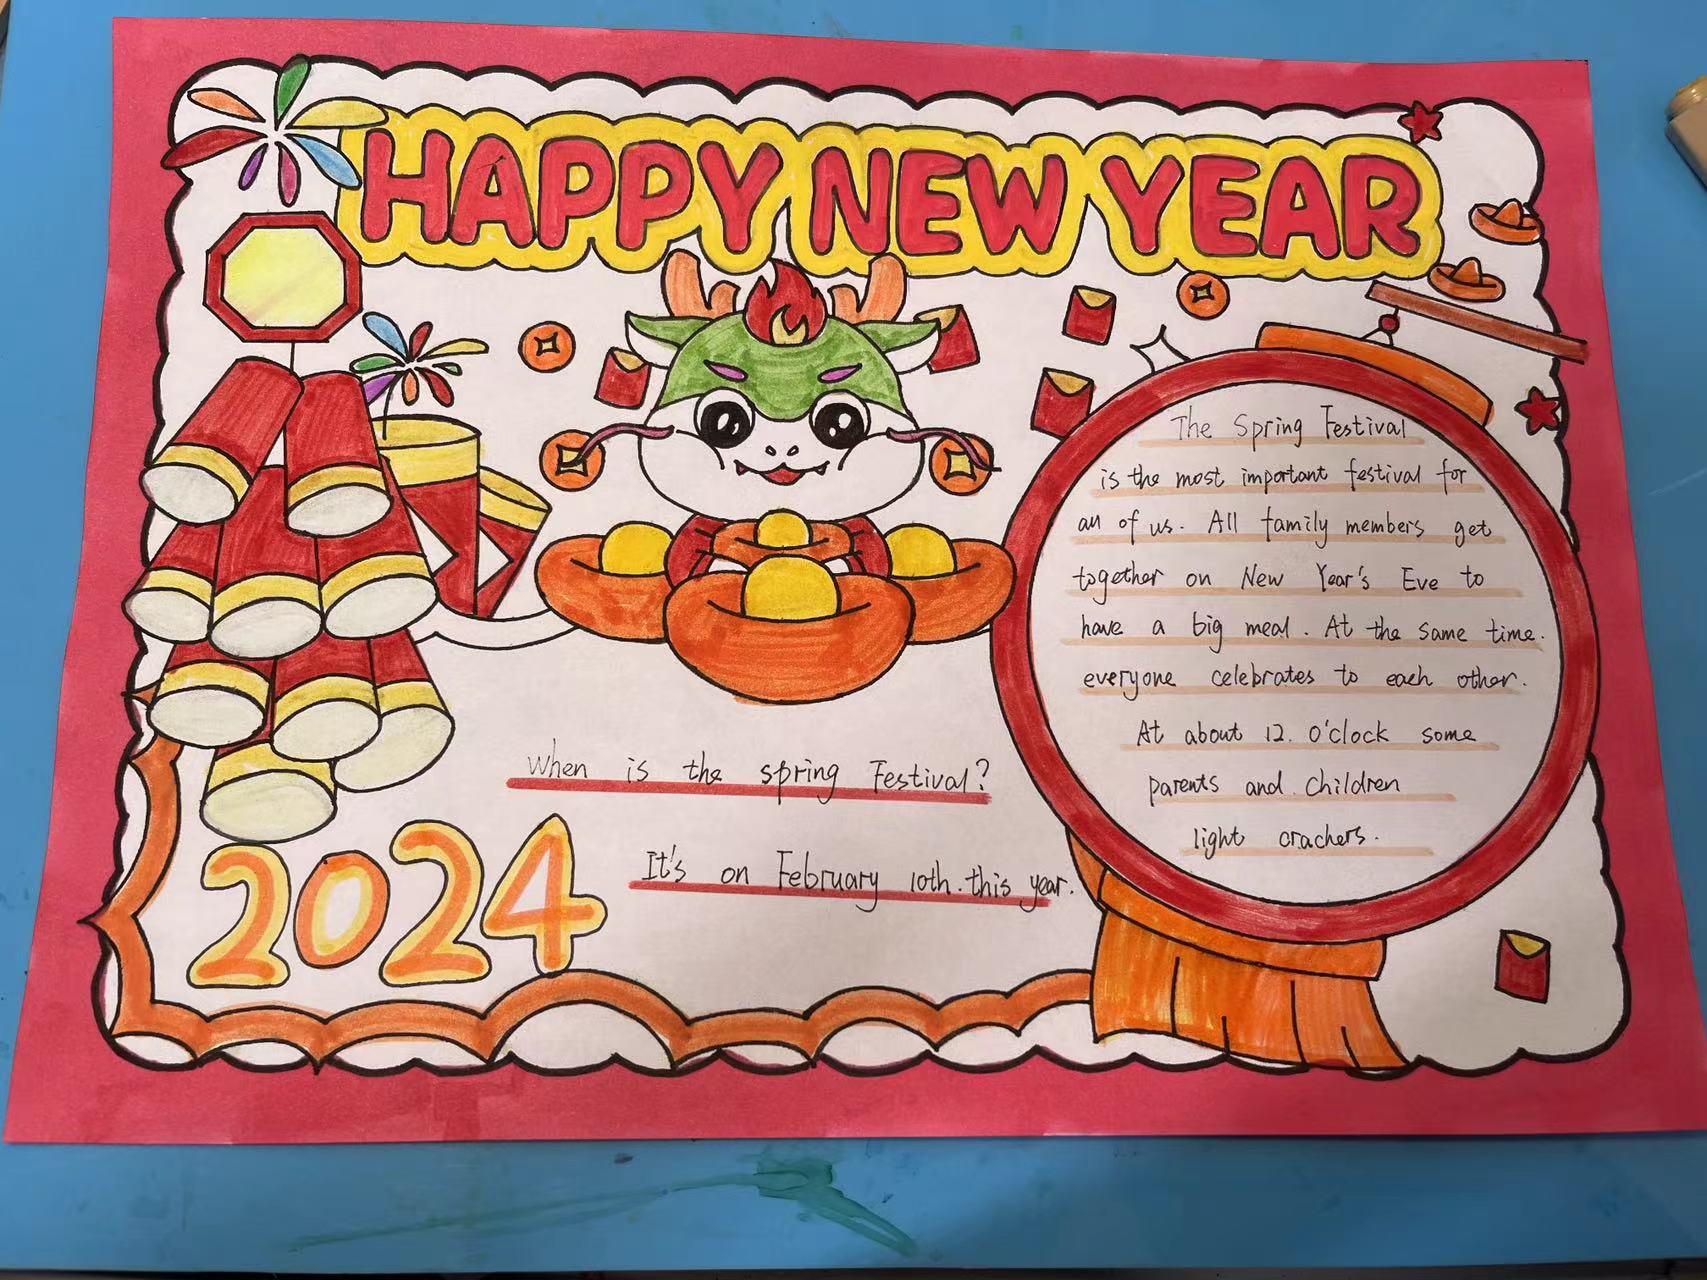 HAPPY NEW YEAR
The Spring Festival
is the most important festival for
all of us. All family members get
together on New Year's Eve to
have a big meal. At the same time.
everyone celebrates to each other.
At about 12. O'clock some
parents and children
light crachers.
When is the spring Festival?
It's on February 10th. this year.
2024